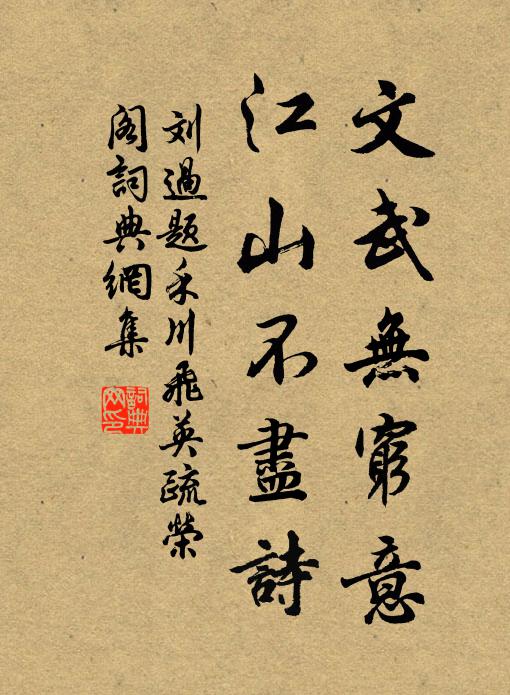 文武無窮意
江山不盡詩
刘過题禾川飛英疏榮
閣詞典網集
詞典網印